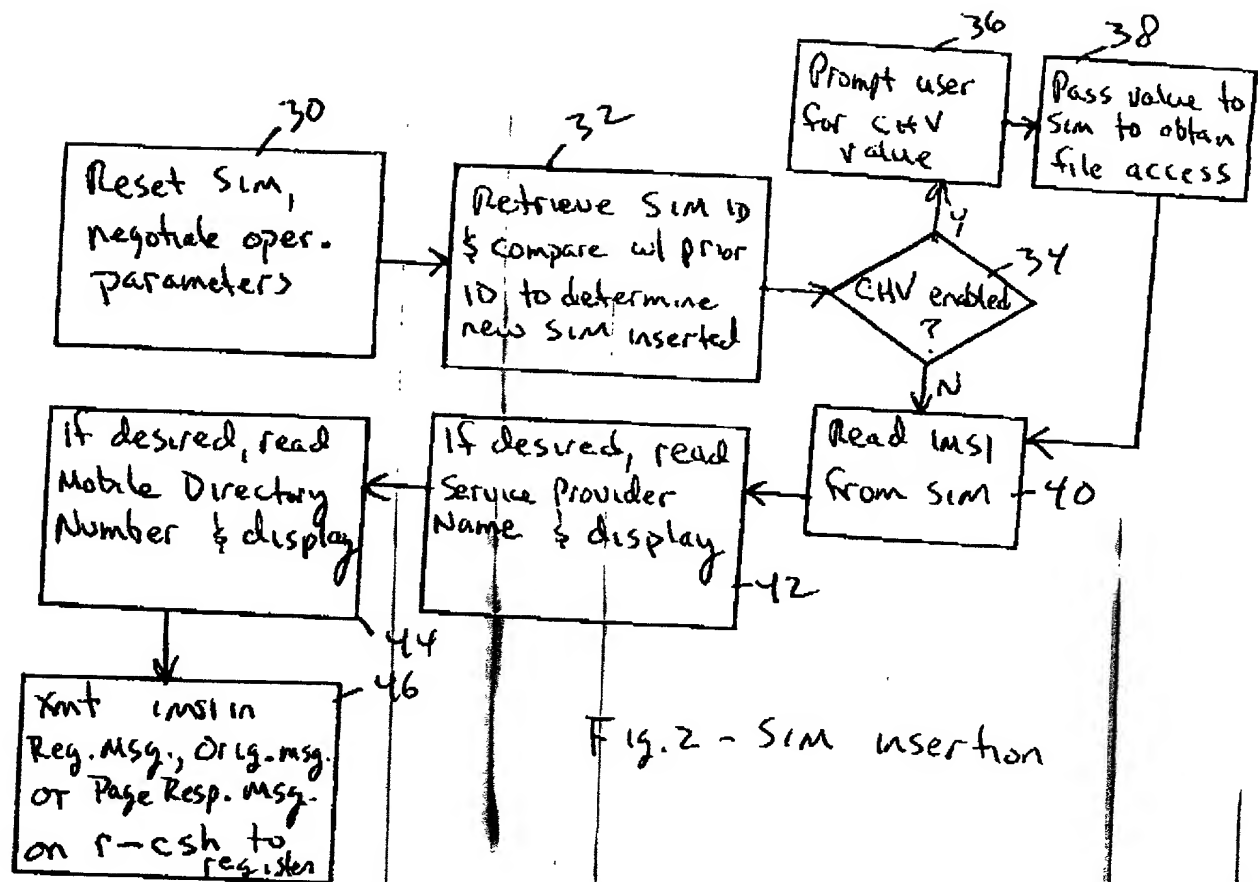 30
Reset SIM,
negotiate oper.
parameters
32
Retrieve SIM ID
& compare w/ prior
ID to determine
new SIM inserted
34
CHV enabled
?
Y
N
36
Prompt user
for CHV
value
38
Pass value to
SIM to obtain
file access
Read IMSI
from SIM
40
If desired, read
Service Provider
Name & display
42
If desired, read
Mobile Directory
Number & display
44
Xmt IMSI in
Reg. Msg., Orig. msg.
or Page Resp. Msg.
on r-csh to
register
46
Fig. 2 - SIM insertion